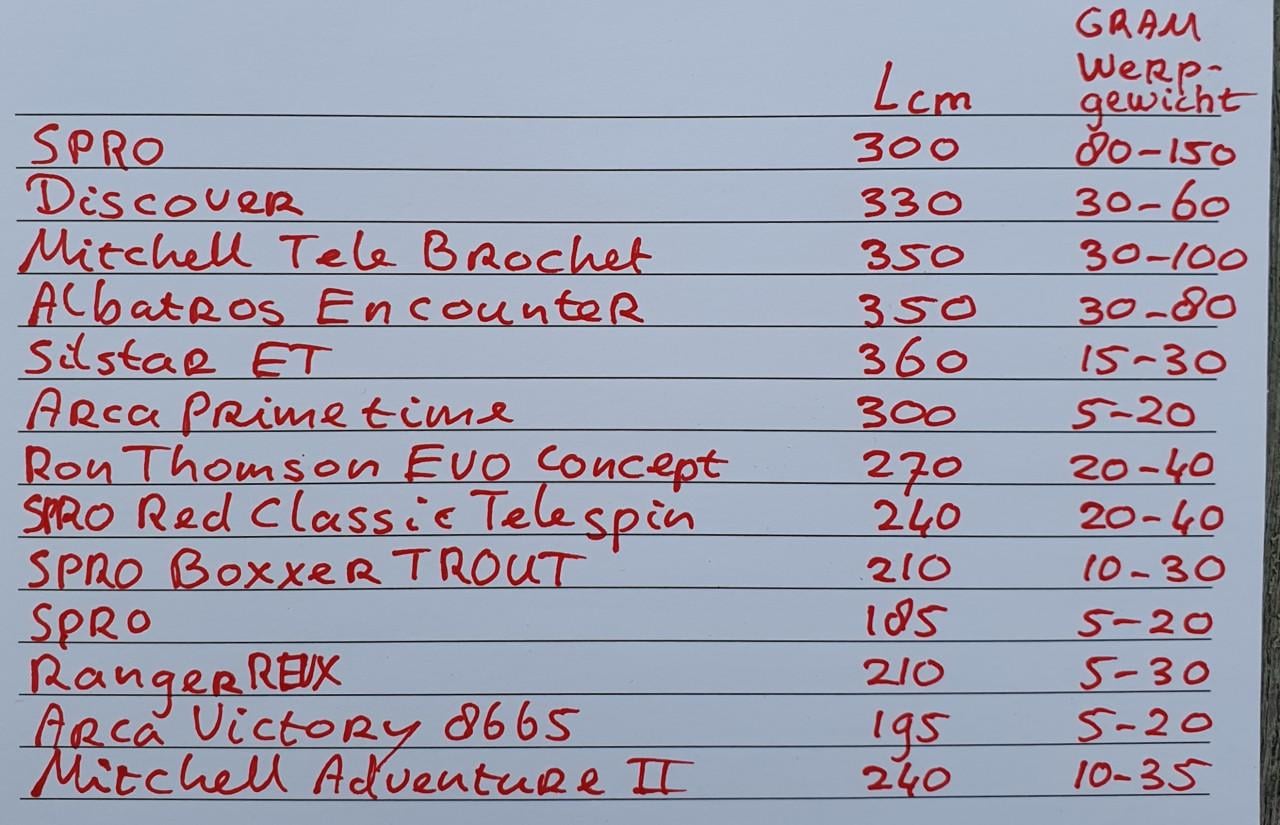 GRAM
L cm Werp-
gewicht
SPRO 300 80-150
Discover 330 30-60
Mitchell Tele Brochet 350 30-100
Albatros Encounter 350 30-80
Silstar ET 360 15-30
Arca Primetime 300 5-20
Ron Thomson EVO Concept 270 20-40
SPRO Red Classic Telespin 240 20-40
SPRO Boxxer TROUT 210 10-30
SPRO 185 5-20
Ranger 210 5-30
Arca Victory 8665 195 5-20
Mitchell Adventure II 240 10-35